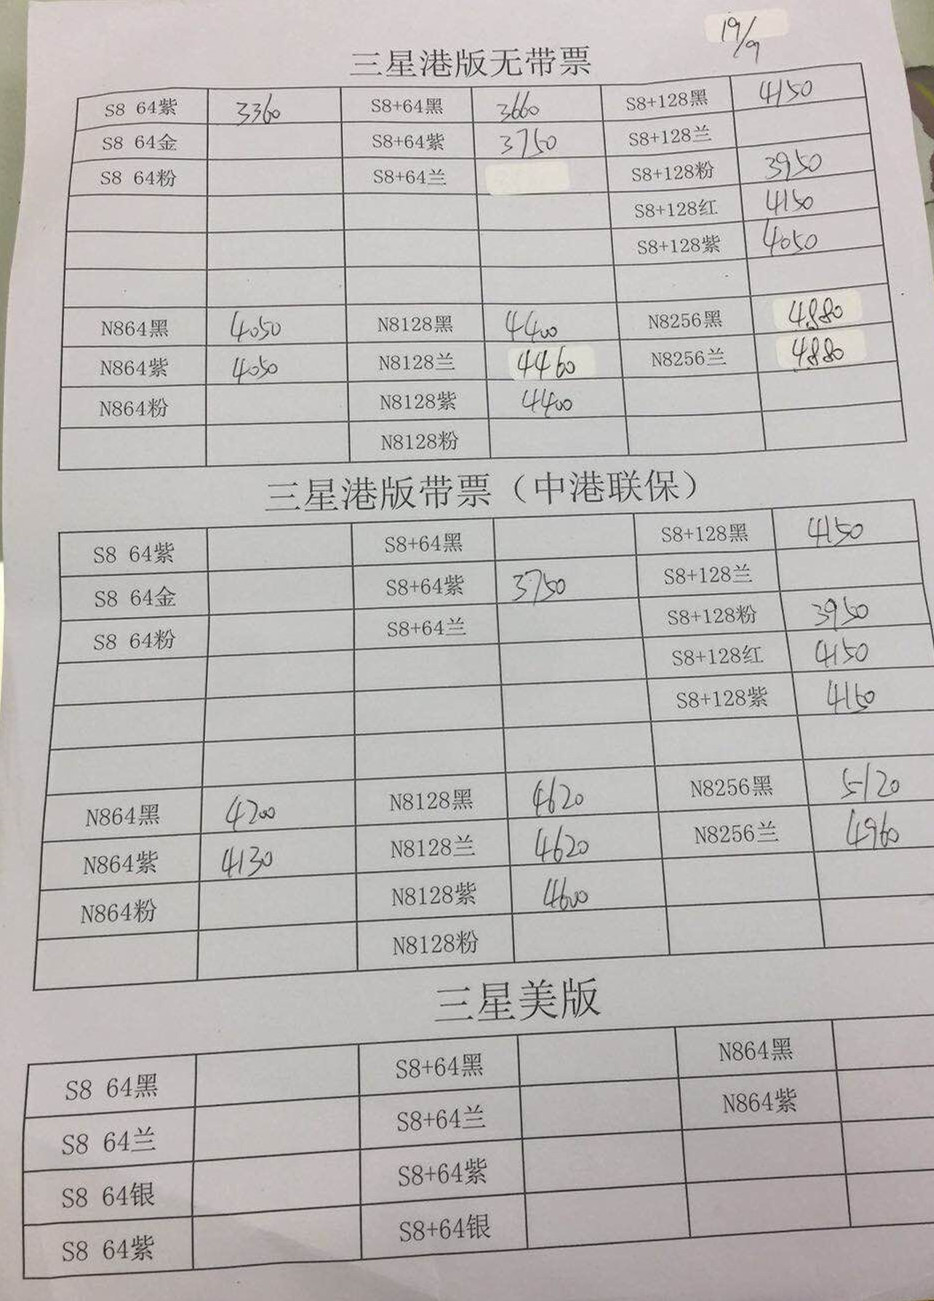 19/9
三星港版无带票
S8 64紫 3360 S8+64黑 3660 S8+128黑 4150
S8 64金 S8+64紫 3750 S8+128兰
S8 64粉 S8+64兰 S8+128粉 3950
S8+128红 4150
S8+128紫 4050
N864黑 4050 N8128黑 4400 N8256黑 4880
N864紫 4050 N8128兰 4460 N8256兰 4880
N864粉 N8128紫 4400
N8128粉
三星港版带票（中港联保）
S8 64紫 S8+64黑 S8+128黑 4150
S8 64金 S8+64紫 3750 S8+128兰
S8 64粉 S8+64兰 S8+128粉 3950
S8+128红 4150
S8+128紫 4150
N864黑 4200 N8128黑 4620 N8256黑 5120
N864紫 4130 N8128兰 4620 N8256兰 4960
N864粉 N8128紫 4600
N8128粉
三星美版
S8 64黑 S8+64黑 N864黑
S8 64兰 S8+64兰 N864紫
S8 64银 S8+64紫
S8 64紫 S8+64银